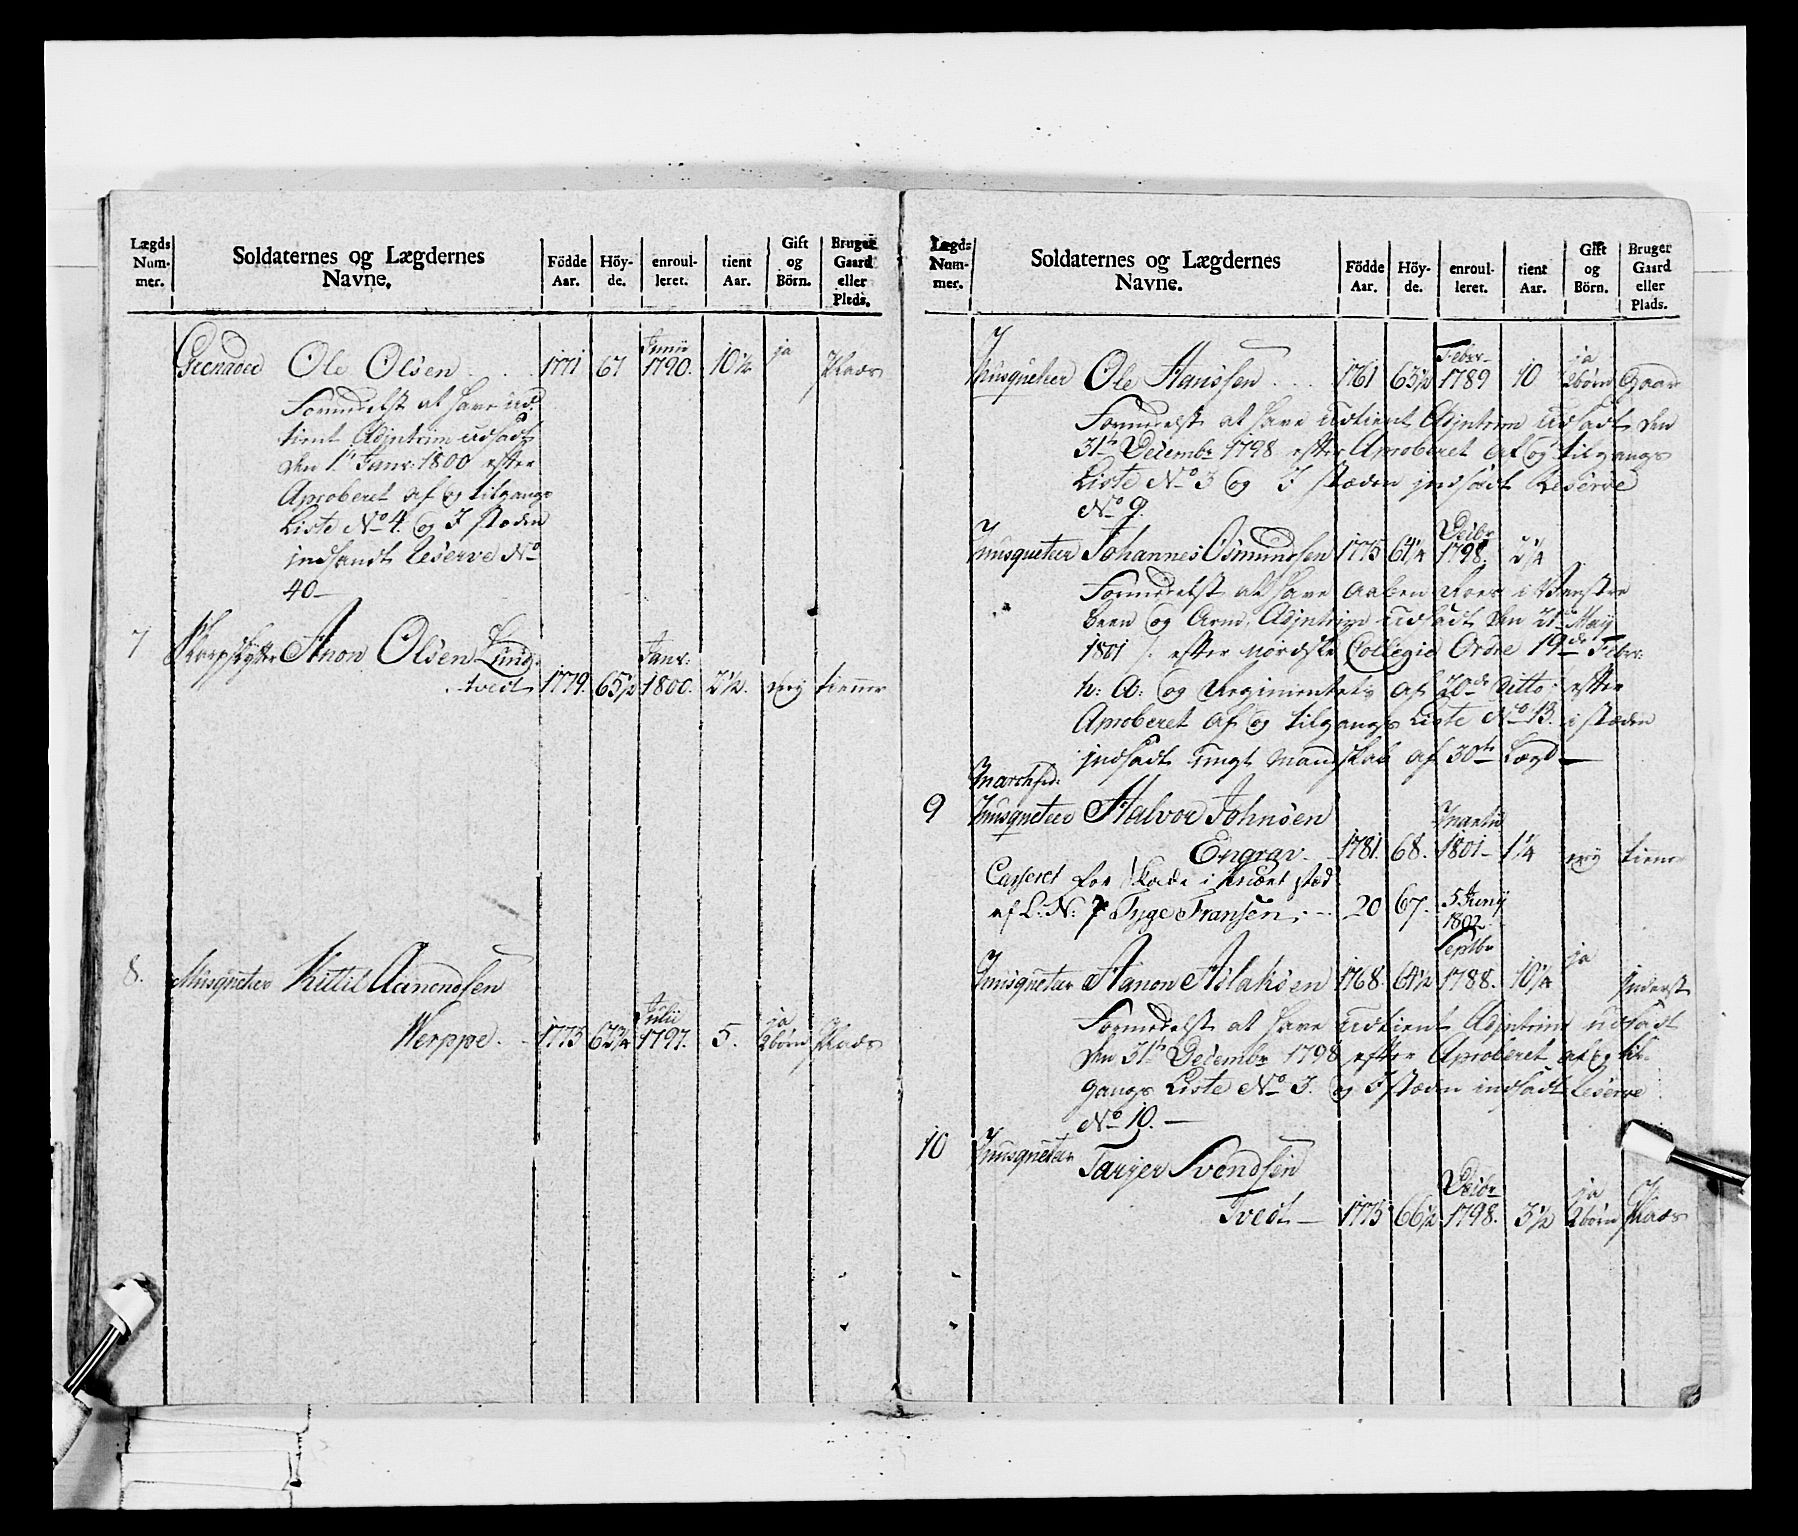 Lægds Num- mer. Soldaternes og Lægdernes Navne. Födde Aar. Höy- de. enroul- leret. tient Aar. Gift og Börn. Bruger Gaard eller Plads.
Grenadeer Ole Olsen 1771 67 Junii 1790. 10½ ja Plads
Formedelst at have ud-
tient Adjntrim udsadt
den 1t Janr: 1800 efter
Aproberet af og tilgangs
Liste No 4. og I stæden
indsandt Reserve No
40 —
7 Skarpskytter Anon Olsen Lund-
tvedt 1779. 65½ Janr: 1800. 2½. ney tiener
8. Musqueteer Kittil Aanendsen
Werppe. 1775 62¾ Julii 1797. 5. ja 2börn Plads
Lægds Num- mer. Soldaternes og Lægdernes Navne. Födde Aar. Höy- de. enroul- leret. tient Aar. Gift og Börn. Bruger Gaard eller Plads.
Musqueteer Ole Hanssen 1761 65½ Febr- 1789 10 ja 2börn Gaar
Formedelst at have udtient Adjntrim udsadt den
31te Decembr 1798 efter Aproberet af og tilgangs
Liste No 3 og I stæden indsadt Reserve
No 9.
Musqueteer Johannes Osmundsen 1775 61¼ Decbr 1798. 2¼
Formedelst at have aaben Skoer i Venstre
been og Arm, Adjntrim udsadt den 21de May
1801 /. efter Nordske Collegie Ordre 19de Febr:
h: A: og Regimentets af 20de ditto, efter
Aproberet af og tilgangs Liste No 13. i stæden
indsadt ungt Mandskab af 30te Lægd —
Marchfrd:
9 Musqueteer Halvor Johnsen
Engrav. 1781. 68. Martii 1801- 1¼ ney tiener
Casseret for Skade i Knæet sted
af L: N: 7 Tyge Fransen. - 20 67. 5 Juny 1802
Musqueteer Aanon Aslaksen 1768. 64½ Septbr 1788. 10¼ ja Inderst
Formedelst at have udtient Adjntrim udsadt
den 31te Decembr 1798 efter Aproberet af og til-
gangs Liste No 3. og I stæden indsadt Reserve
No 10. —
10 Musqueteer Tarjer Svendsen
Tvedt — 1775 66½ Decbr 1798. 3½ ja 2börn Plads